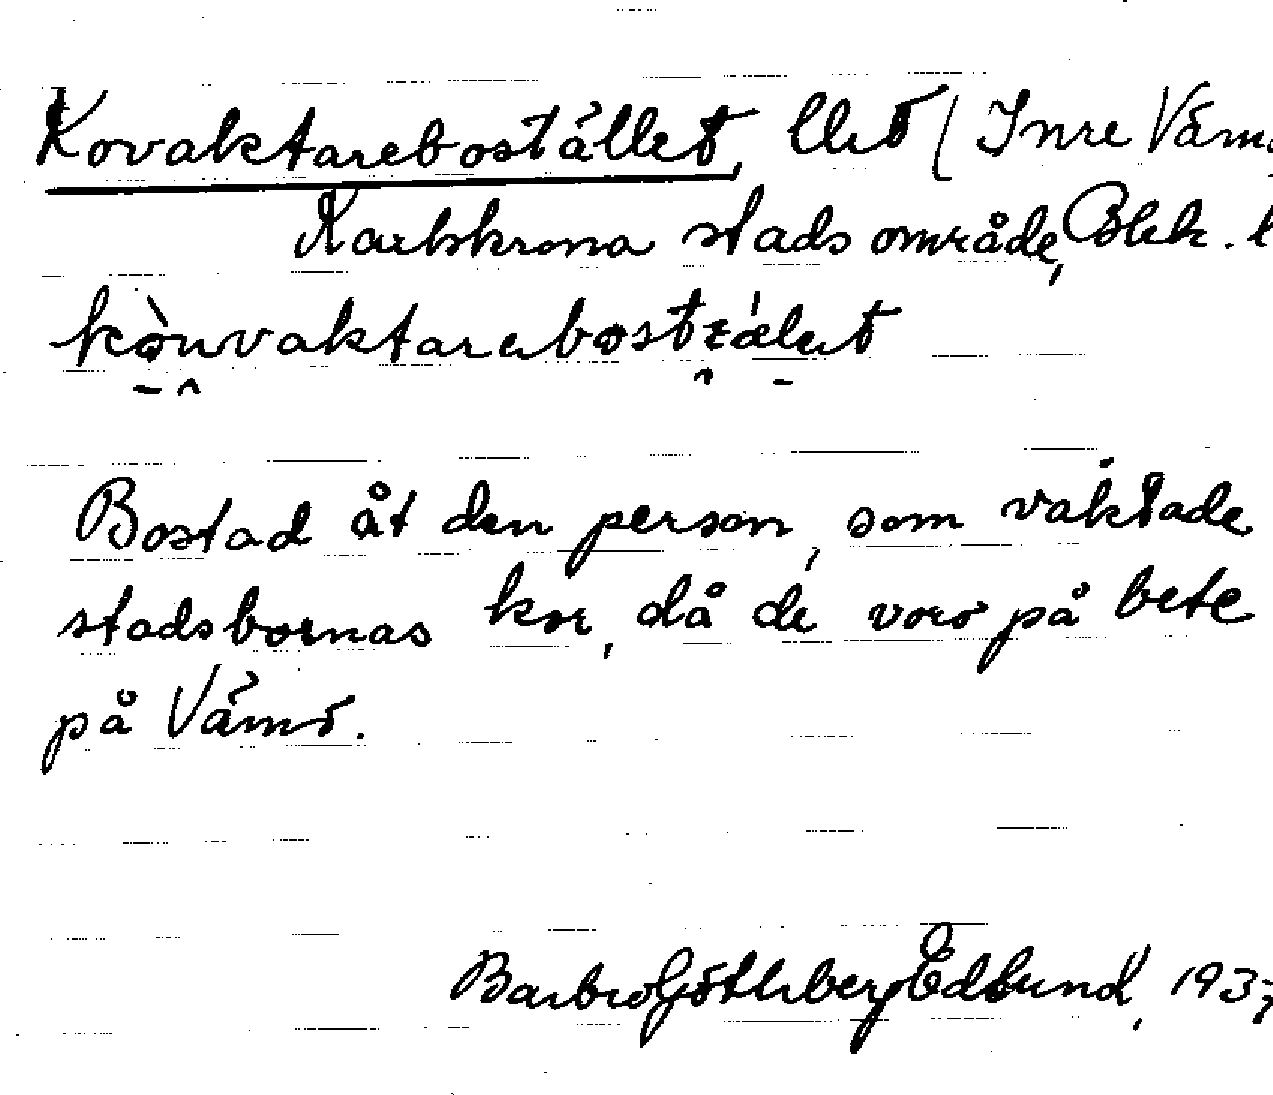 Kovaktarebostället, Uet (Inre Väm
Karlskrona stads område, Blek. l
kònvaktarebostzǽlet
Bostad åt den person, som vaktade
stadsbornas kor, då de voro på bete
på Vämö.
Barbro Göthberg Edlund, 1937